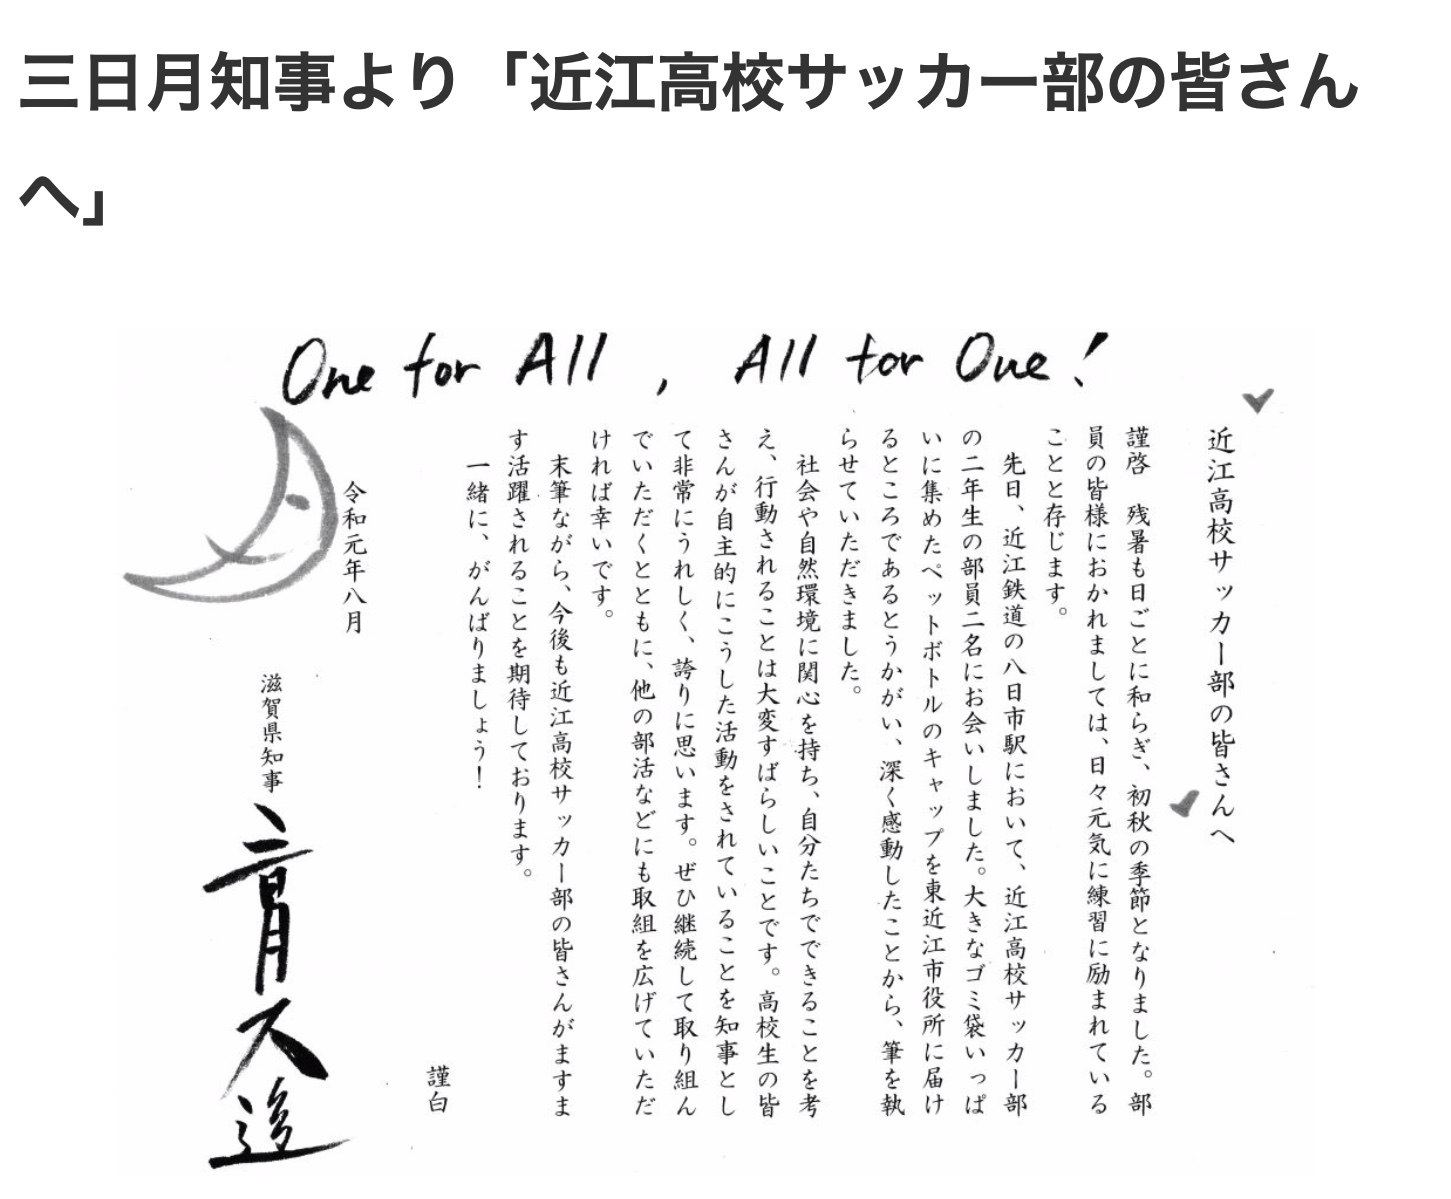 三日月知事より「近江高校サッカー部の皆さん
へ」
One for All , All for One!
近江高校サッカー部の皆さんへ
謹啓　残暑も日ごとに和らぎ、初秋の季節となりました。部
員の皆様におかれましては、日々元気に練習に励まれている
ことと存じます。
先日、近江鉄道の八日市駅において、近江高校サッカー部
の二年生の部員二名にお会いしました。大きなゴミ袋いっぱ
いに集めたペットボトルのキャップを東近江市役所に届け
るところであるとうかがい、深く感動したことから、筆を執
らせていただきました。
社会や自然環境に関心を持ち、自分たちでできることを考
え、行動されることは大変すばらしいことです。高校生の皆
さんが自主的にこうした活動をされていることを知事とし
て非常にうれしく、誇りに思います。ぜひ継続して取り組ん
でいただくとともに、他の部活などにも取組を広げていただ
ければ幸いです。
末筆ながら、今後も近江高校サッカー部の皆さんがますま
す活躍されることを期待しております。
一緒に、がんばりましょう！
謹白
令和元年八月
滋賀県知事
三日月大造